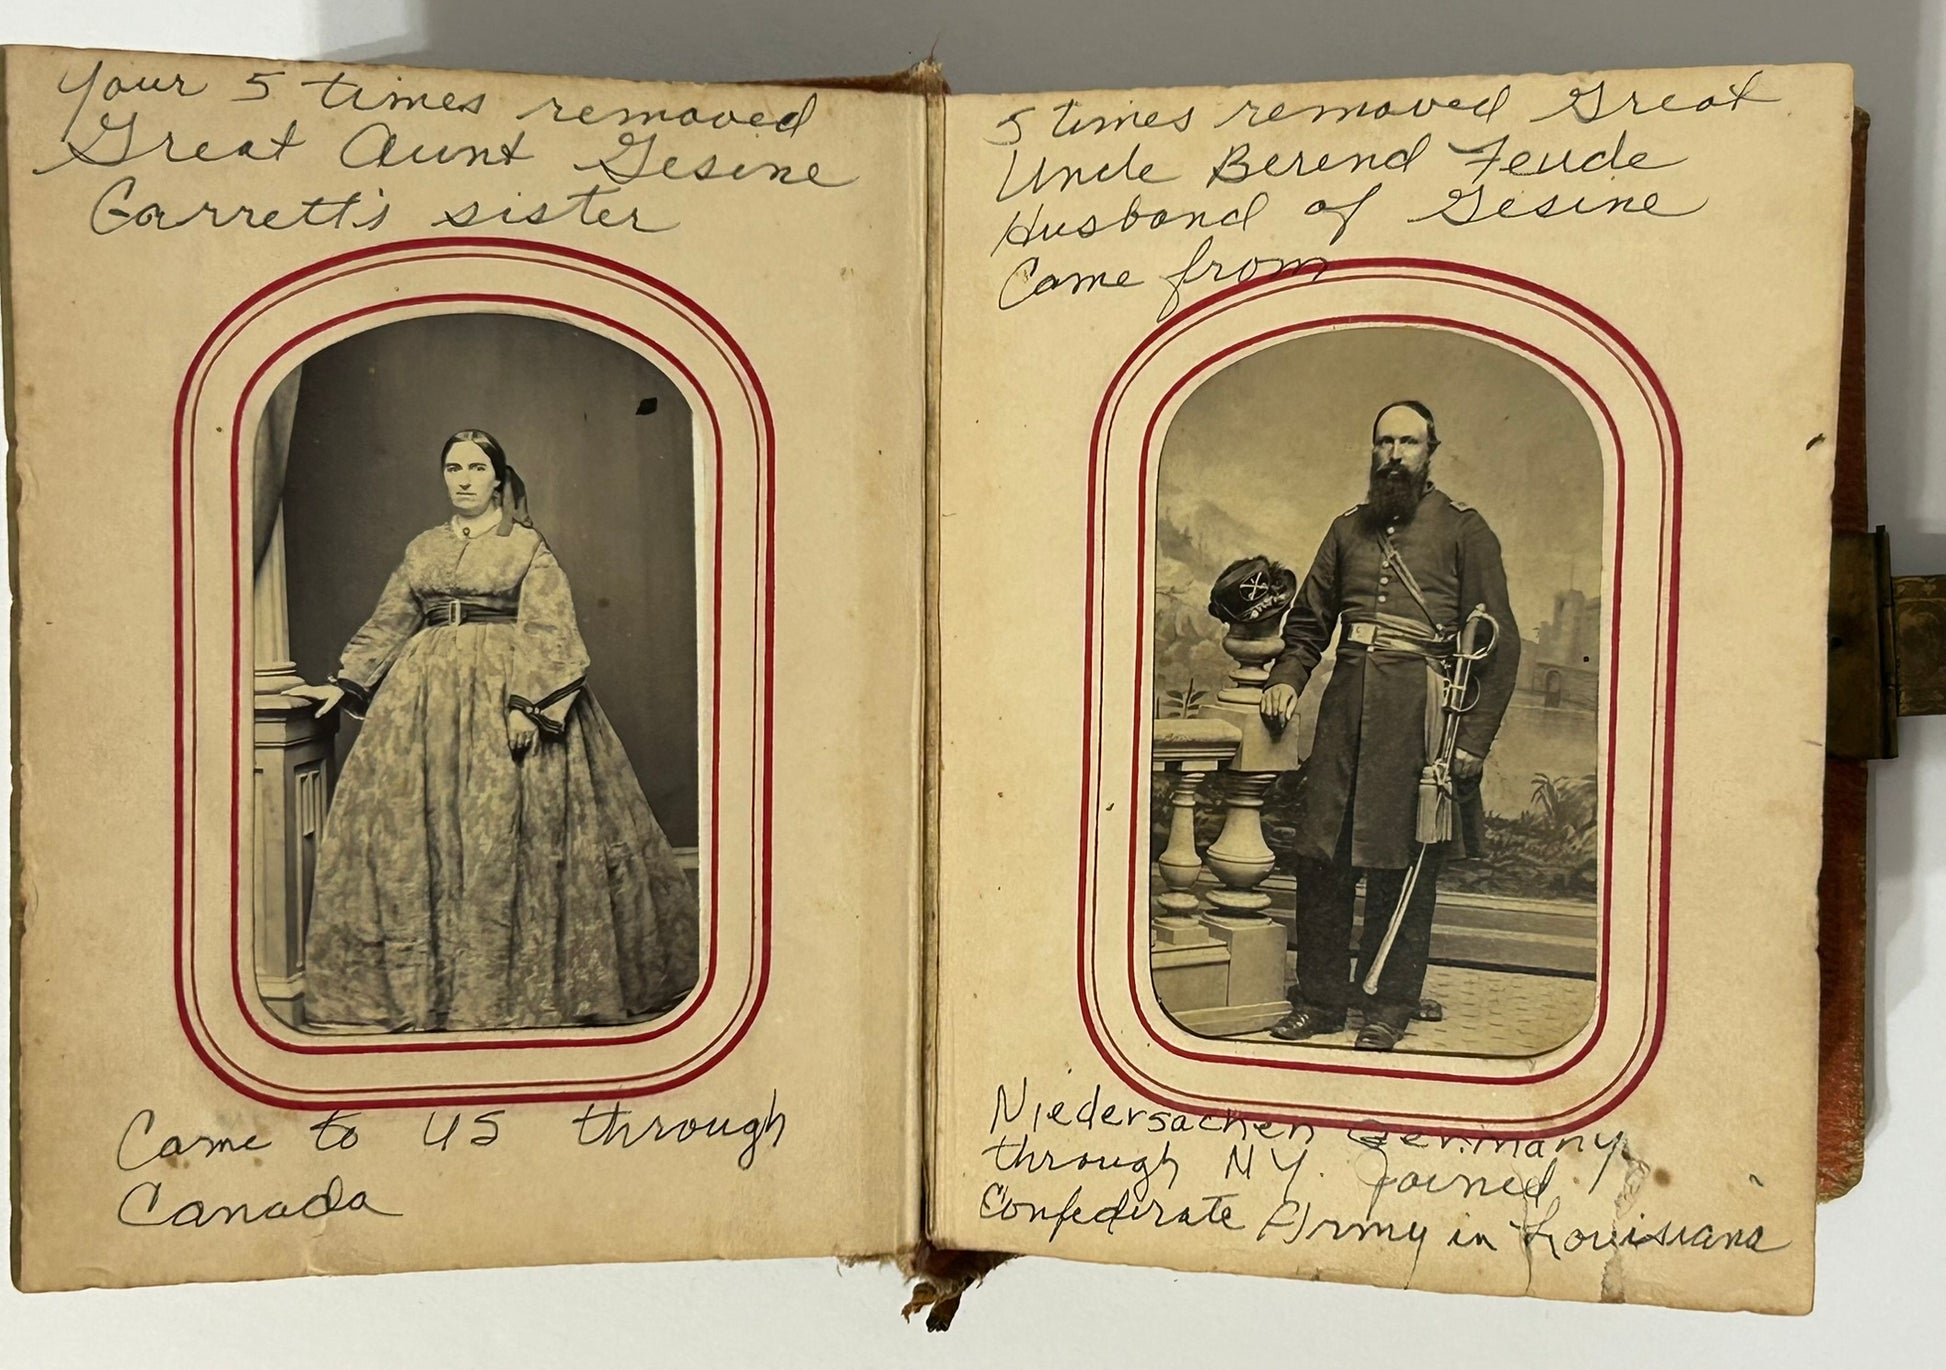 Your 5 times removed
Great Aunt Gesine
Garrett's sister
Came to US through
Canada
5 times removed Great
Uncle Berend Feude
Husband of Gesine
Came from
Niedersachen Germany
through NY. Joined
Confederate Army in Louisiana